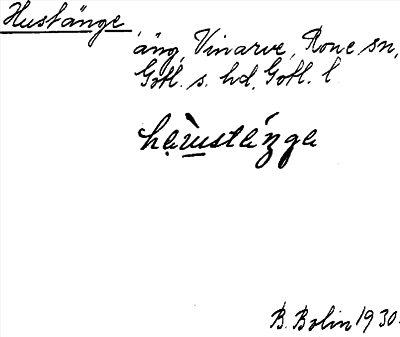 Hustänge
äng, Vinarve, Rone sn,
Gotl. s. hd, Gotl. l
B. Bolin 1930.